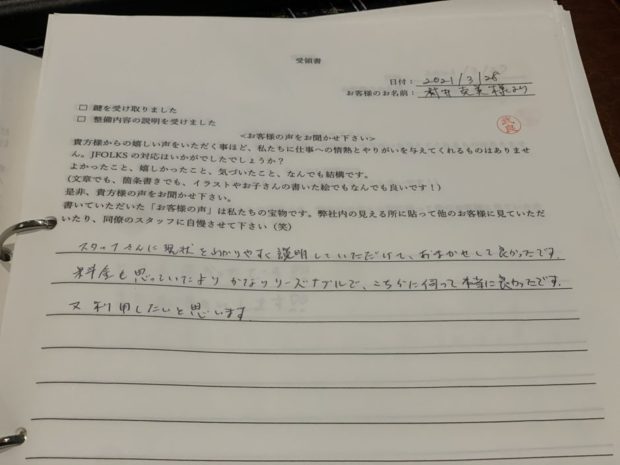 受領書
日付： 2021/3/28
お客様のお名前： 様より
□ 鍵を受け取りました
□ 整備内容の説明を受けました
<お客様の声をお聞かせ下さい>
貴方様からの嬉しい声をいただく事ほど、私たちに仕事への情熱とやりがいを与えてくれるものはありません。
JFOLKS の対応はいかがでしたでしょうか？
よかったこと、嬉しかったこと、気づいたこと、なんでも結構です。
(文章でも、箇条書きでも、イラストやお子さんの書いた絵でもなんでも良いです！)
是非、貴方様の声をお聞かせ下さい。
書いていただいた「お客様の声」は私たちの宝物です。弊社内の見える所に貼って他のお客様に見ていただ
いたり、同僚のスタッフに自慢させて下さい（笑）
スタッフさんに現状をわかりやすく説明していただけて、おまかせして良かったです。
料金も思っていたよりかなりリーズナブルで、こちらに伺って本当に良かったです。
又利用したいと思います